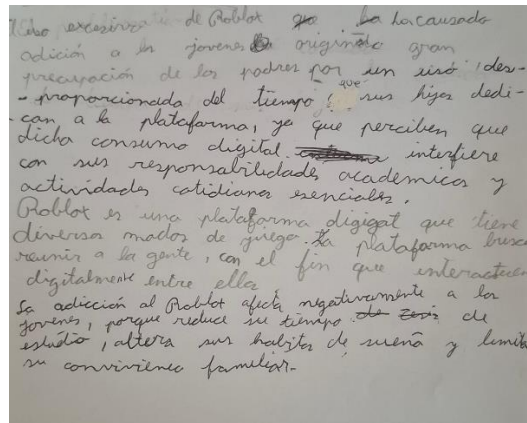 uso excesivo de Roblox ha causado
adición a los jovenes originado gran
precupación de los padres por un uso des-
- proporcionada del tiempo que sus hijos dedi-
- can a la plataforma, ya que perciben que
dicha consumo digital interfiere
con sus responsabilidades academicas y
actividades cotidianas esenciales.
Roblox es una plataforma digigat que tiene
diversos modos de juego. La plataforma busca
reunir a la gente, con el fin que interactuen
digitalmente entre ella
La adicción al Roblox afecta negativamente a los
jovenes, porque reduce su tiempo de
estudio, altera sus habitos de sueño y limita
su convivienca familiar.